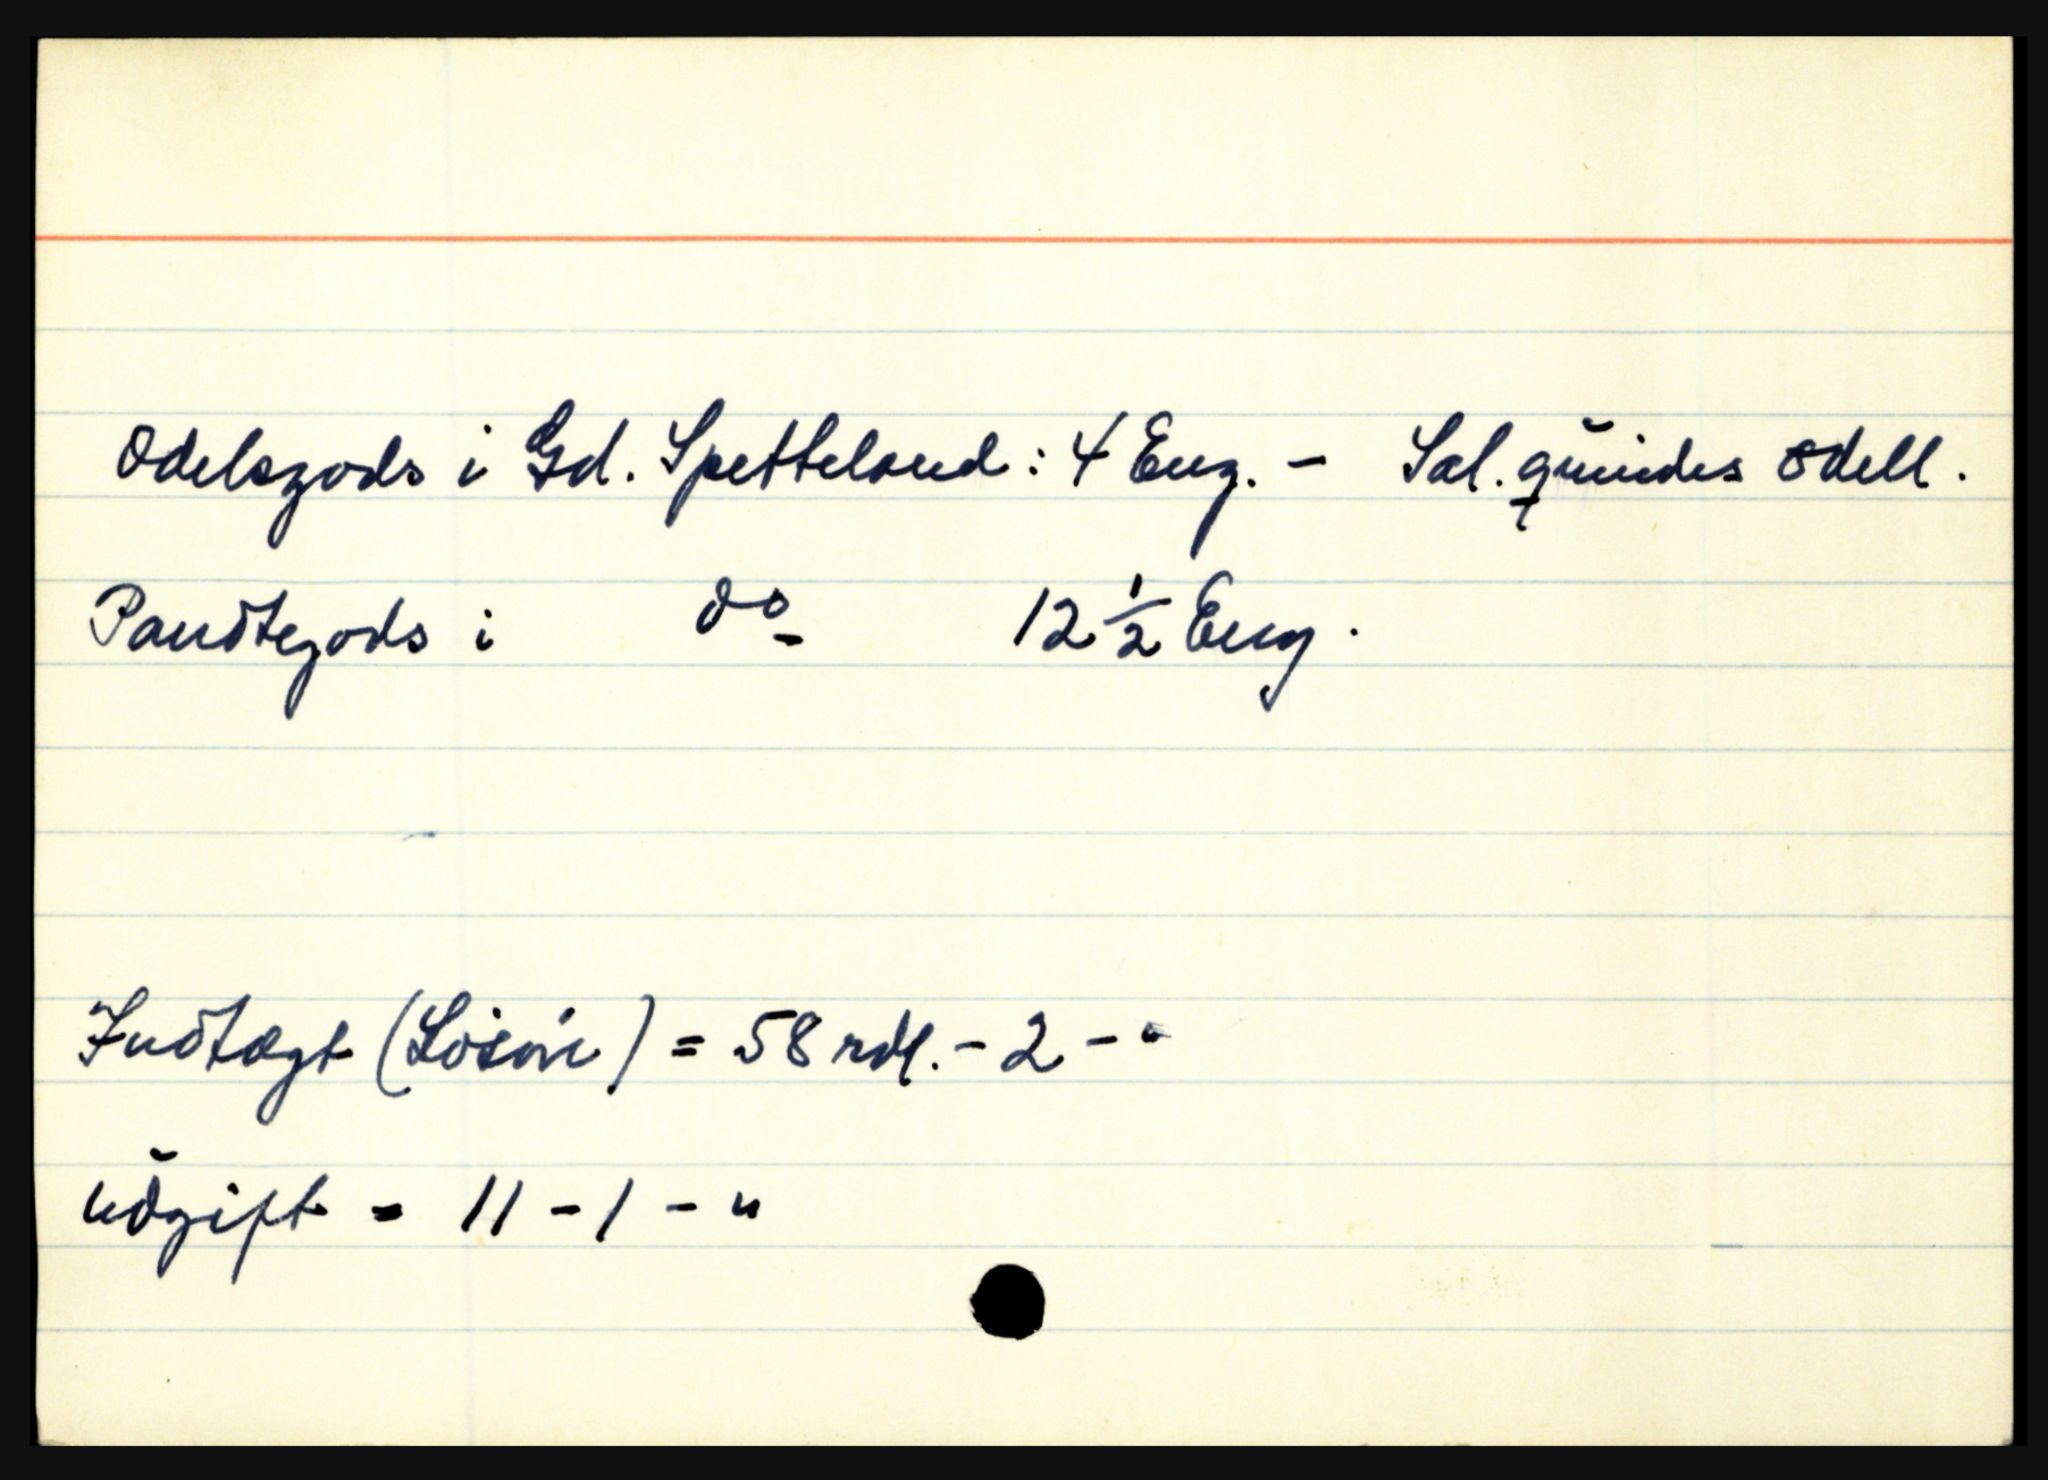 Odelsgods i Gd. Spetteland : 4 Eng. - Sal. quindes odell.
Pandtegods i do 12 1/2 Eng.
Indtægt (Løsøre) = 58 rdl. - 2 - "
Udgift = 11 - 1 - "